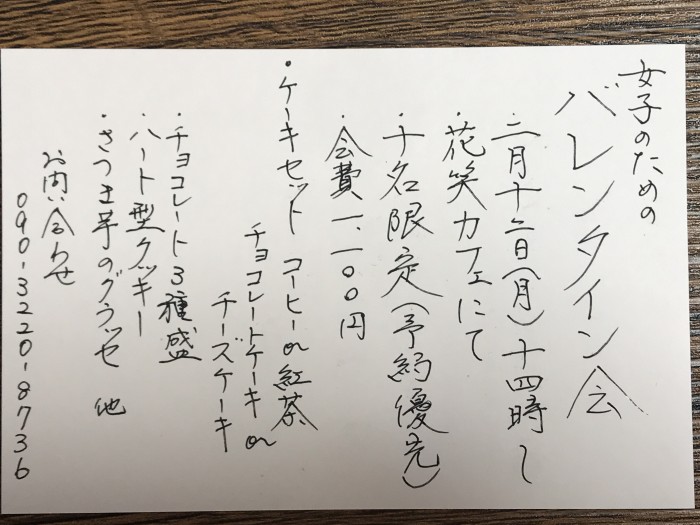 女子のための
バレンタイン会
・二月十二日(月)十四時〜
・花笑カフェにて
・十名限定(予約優先)
・会費一、一〇〇円
・ケーキセット コーヒーor紅茶
チョコレートケーキor
チーズケーキ
・チョコレート3種盛
・ハート型クッキー
・さつま芋のグラッセ 他
お問い合わせ
090-3220-8736